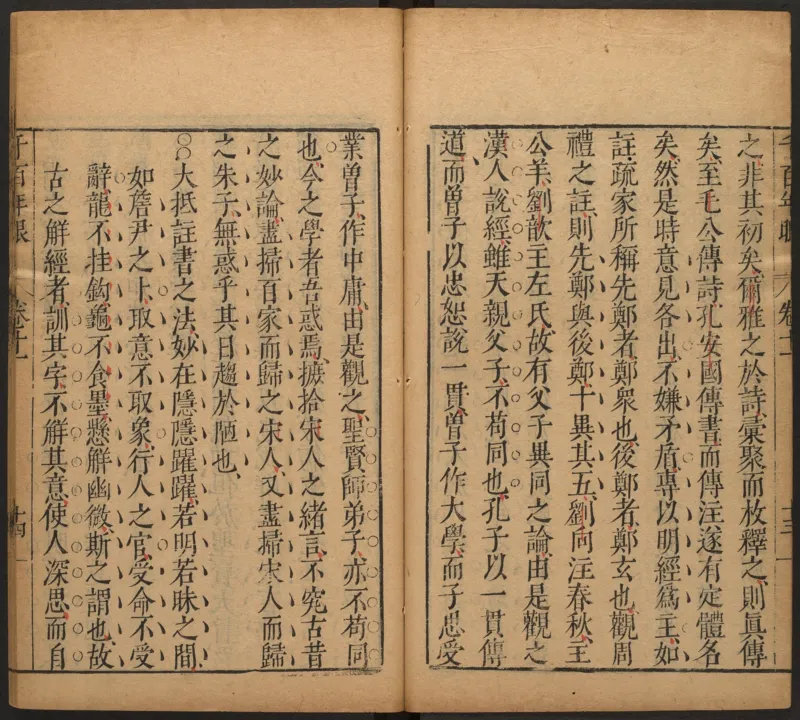 之非其初矣爾雅之於詩彙聚而枚釋之則眞傳
矣至毛公傳詩孔安國傳書而傳注遂有定體名
矣然是時意見各出不嫌矛盾專以明經爲主如
註疏家所稱先鄭者鄭衆也後鄭者鄭玄也觀周
禮之註則先鄭與後鄭十異其五劉向注春秋主
公羊劉歆主左氏故有父子異同之論由是觀之
漢人說經雖天親父子不苟同也孔子以一貫傳
道而曾子以忠恕說一貫曾子作大學而子思受
千百年眼
卷十一
十四
業曾子作中庸由是觀之聖賢師弟子亦不苟同
也今之學者吾惑焉摭拾宋人之緒言不究古昔
之妙論盡掃百家而歸之宋人又盡掃宋人而歸
之朱子無惑乎其日趨於陋也
○大抵註書之法妙在隱隱躍躍若明若昧之間
如詹尹之卜取意不取象行人之官受命不受
辭龍不挂鈎龜不食墨懸解幽微斯之謂也故
古之解經者訓其字不解其意使人深思而自